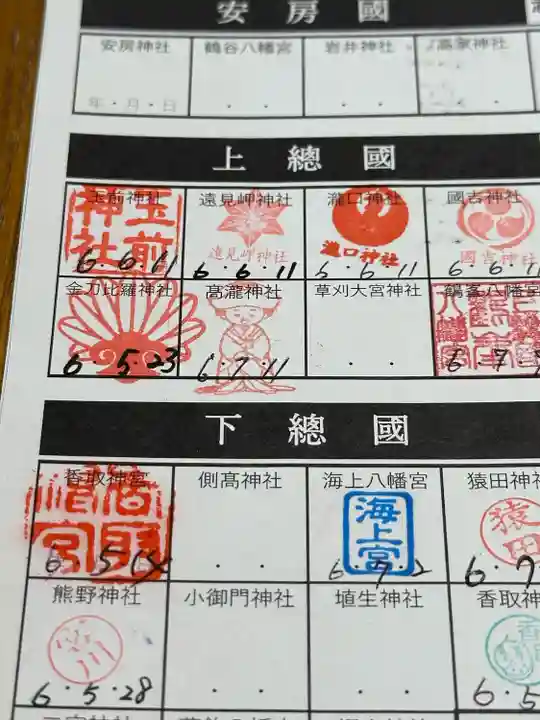 安房國
安房神社 鶴谷八幡宮 岩井神社 高家神社
年・月・日 ・ ・ ・ ・ ・ ・
上總國
玉前神社 遠見岬神社 瀧口神社 國吉神社
玉前神社 遠見岬神社 瀧口神社 國吉神社
6・6・11 6・6・11 6・6・11 6・6・11
金刀比羅神社 高瀧神社 草刈大宮神社 鶴峯八幡宮
6・5・23 6・7・11 ・ ・ 6・7
下總國
香取神宮 側高神社 海上八幡宮 猿田神
香取神宮 海上宮 猿田
6・5・15 ・ ・ 6・7・2 6・7
熊野神社 小御門神社 埴生神社 香取神
6・5・28 ・ ・ ・ ・ 6・5